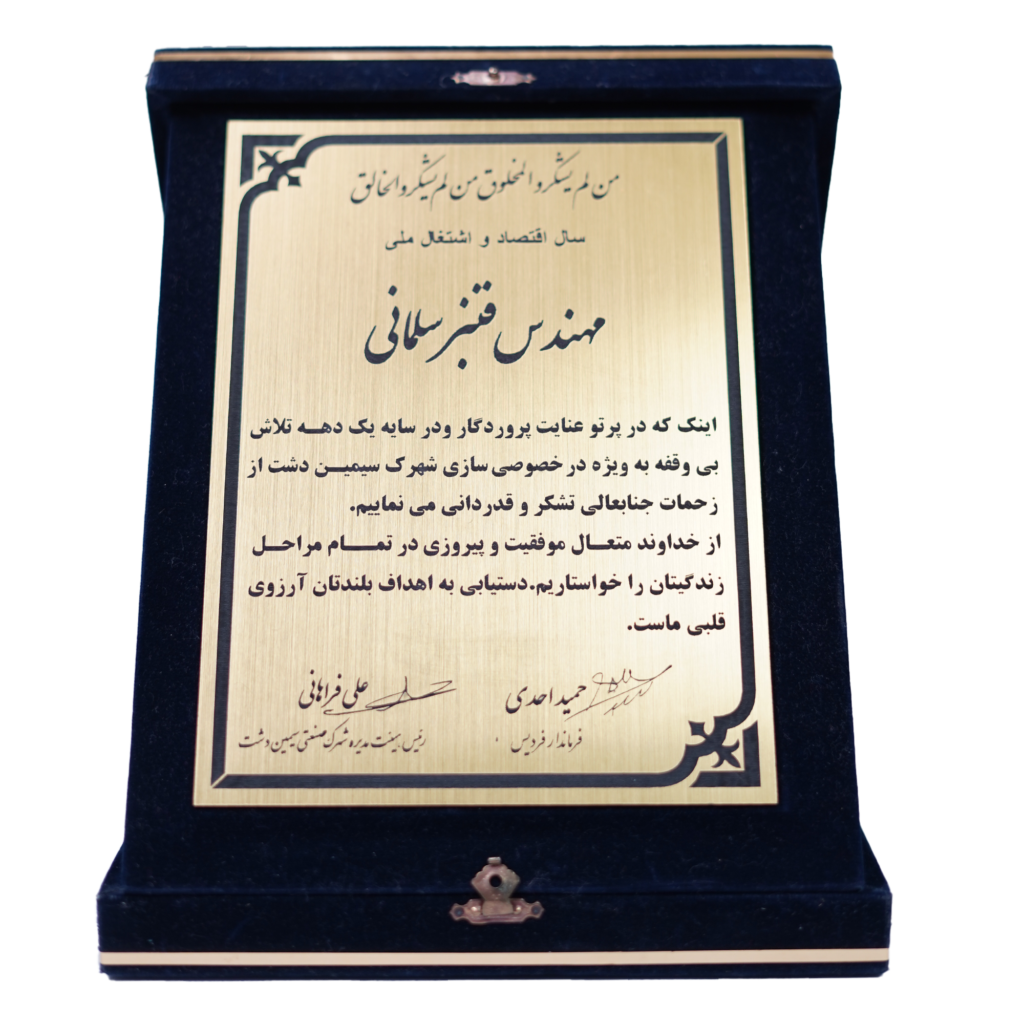 من لم یشکر المخلوق من لم یشکر الخالق
سال اقتصاد و اشتغال ملی
مهندس قنبر سلمانی
اینک که در پرتو عنایت پروردگار ودر سایه یک دهه تلاش
بی وقفه به ویژه در خصوصی سازی شهرک سیمین دشت از
زحمات جنابعالی تشکر و قدردانی می نماییم.
از خداوند متعال موفقیت و پیروزی در تمام مراحل
زندگیتان را خواستاریم.دستیابی به اهداف بلندتان آرزوی
قلبی ماست.
حمید احدی
فرماندار فردیس
علی فراهانی
رئیس هیئت مدیره شهرک صنعتی سیمین دشت